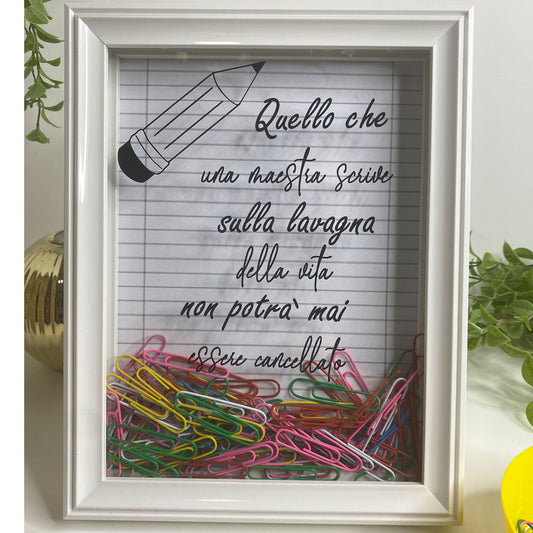 Quello che
una maestra scrive
sulla lavagna
della vita
non potrà mai
essere cancellato